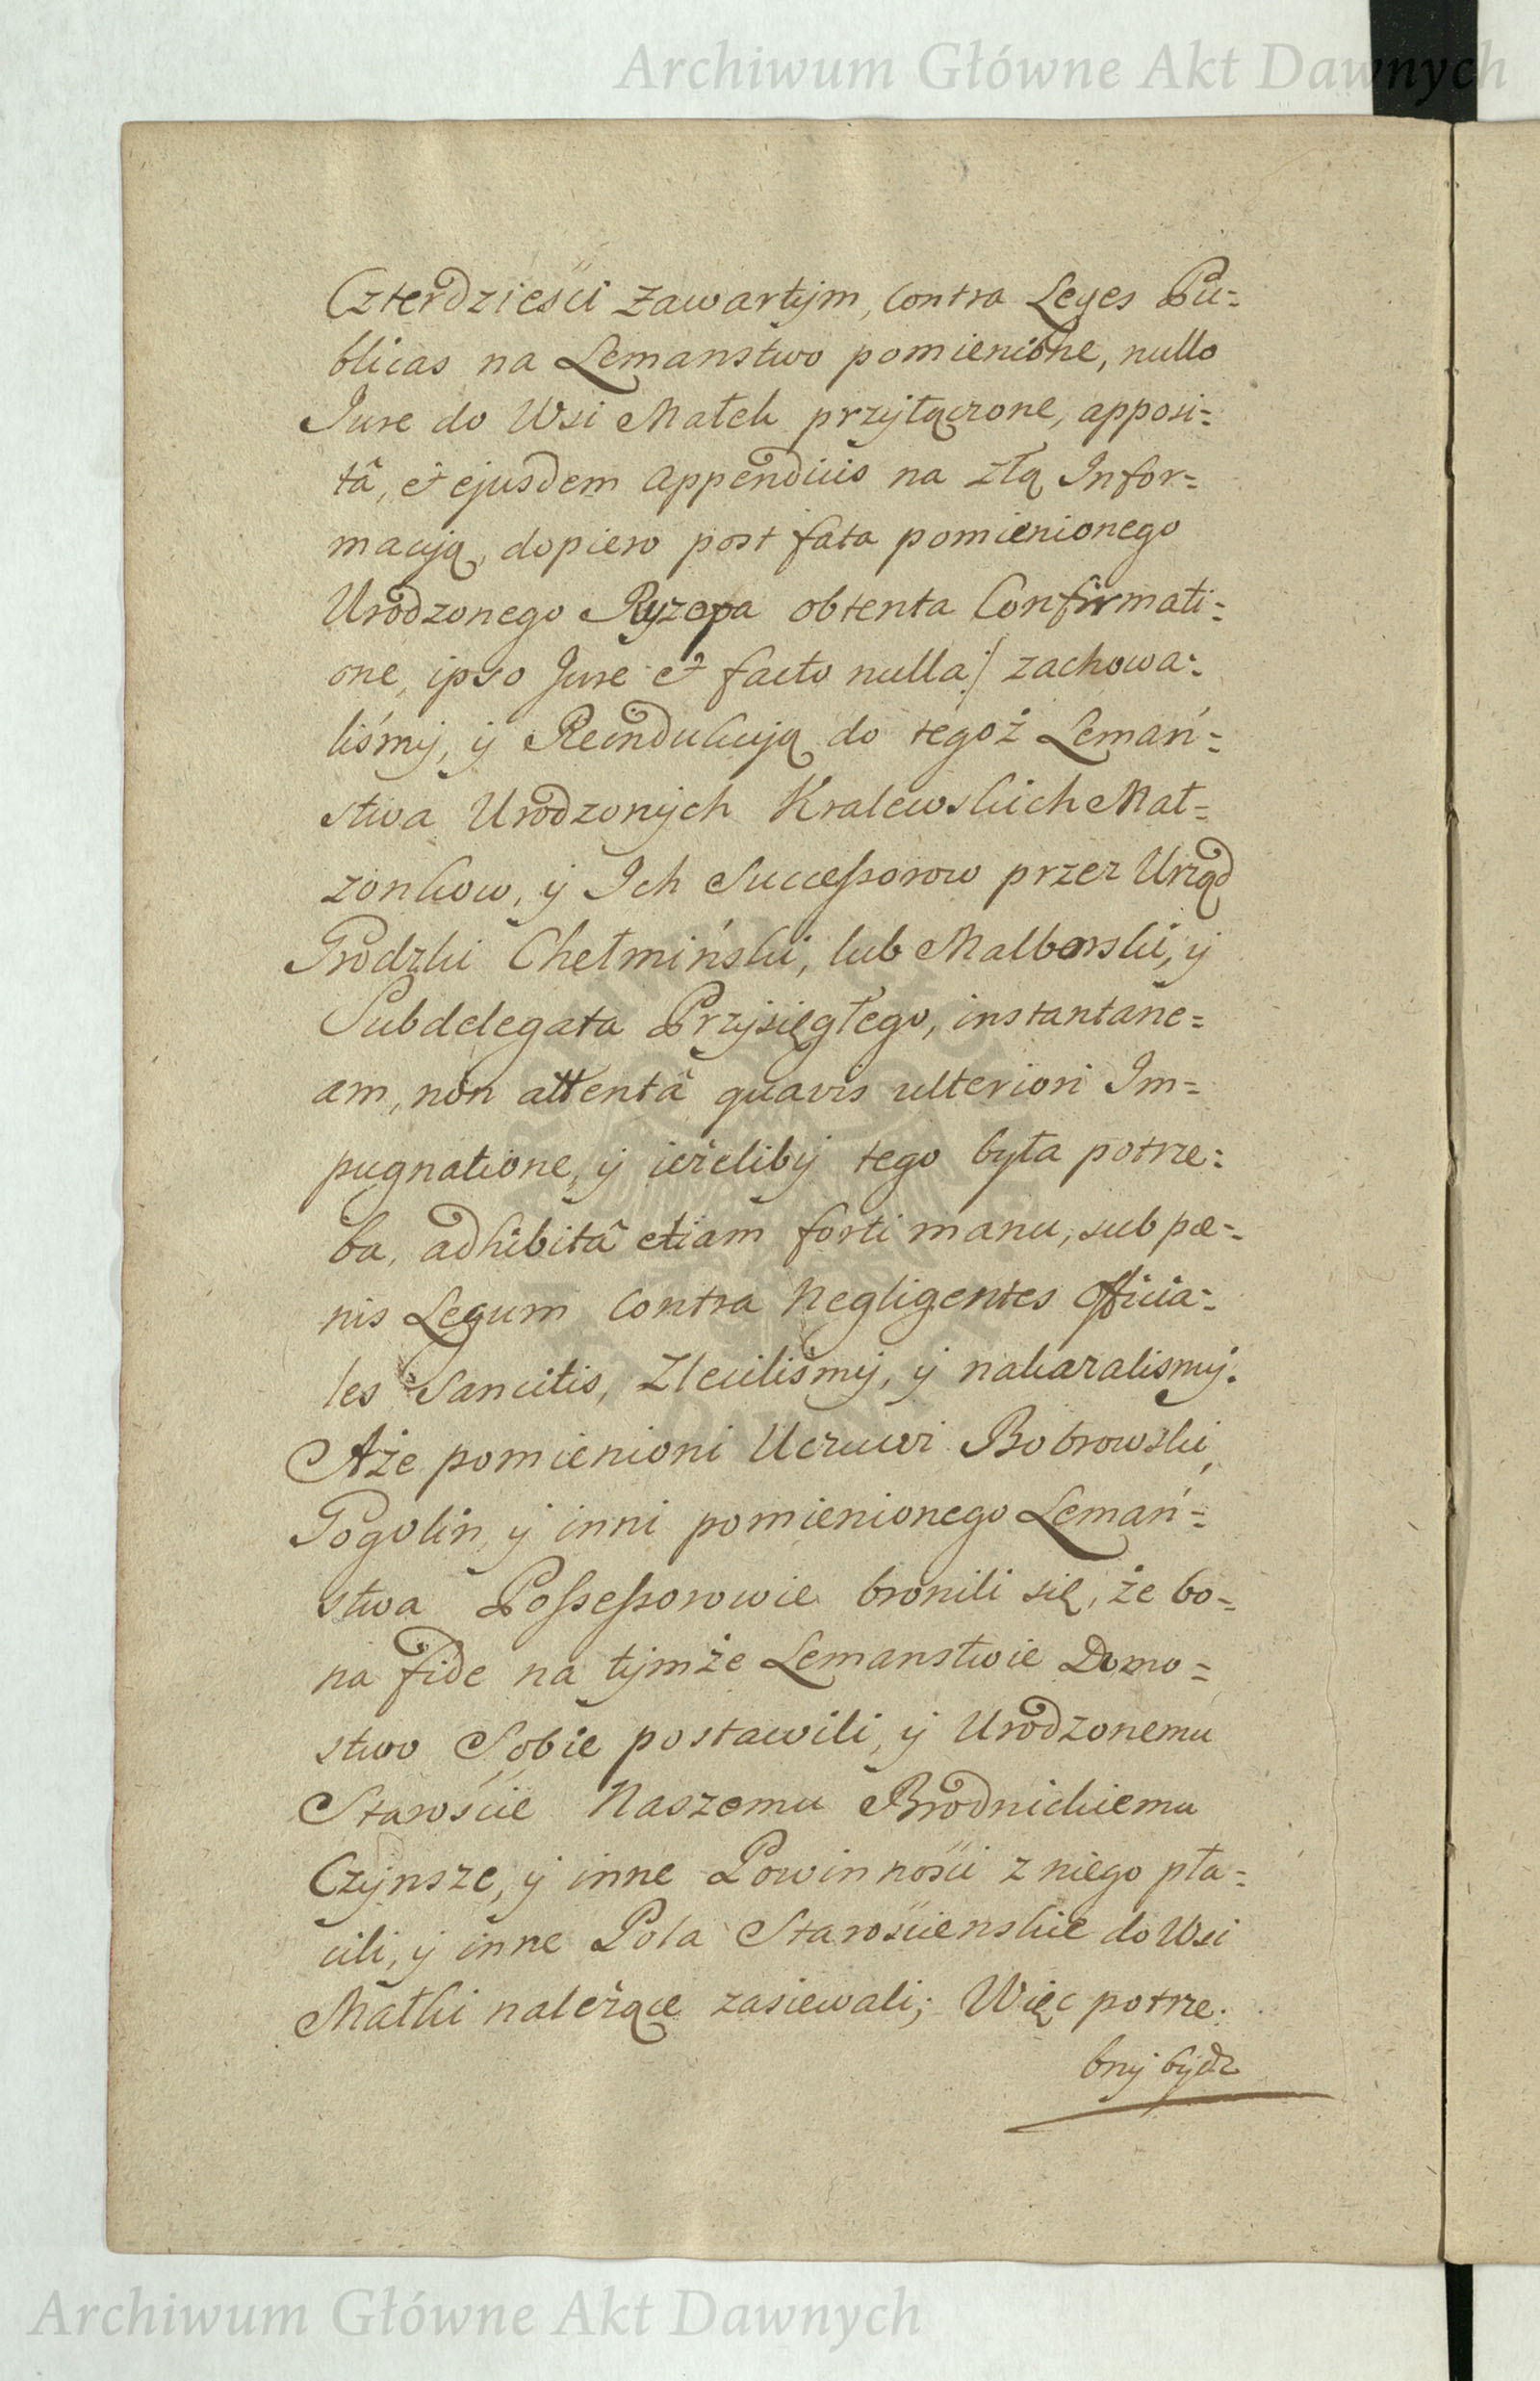 Archiwum Główne Akt Dawnych
Czterdzieści zawartym, contra Leges Pu=
blicas na Lemanstwo pomienione, nullo
Jure do Wsi Małek przyłączone, apposi=
tâ, et ejusdem appendiis na złą Infor=
macyją, dopiero post fata pomienionego
Urodzonego Ryzopa obtenta Confirmati=
one, ipso Jure et facto nulla:/ zachowa=
liśmy, y Reindukcyją do tegoż Lemań=
stwa Urodzonych Kralewskich Mał=
zonkow, y Ich Successorow przez Urząd
Grodzki Chełmiński, lub Malborski, y
Subdelegata Przysięgłego, instantane=
am, non attentâ quavis ulteriori Im=
pugnatione, y ieżeliby tego była potrze=
ba, adhibitâ etiam forti manu, sub pœ=
nis Legum contra Negligentes Officia=
les Sancitis, Zleciliśmy, y nakazalismy.
Aże pomienioni Uczciwi Bobrowski,
Gogolin, y inni pomienionego Lemań=
stwa Possessorowie bronili się, że bo=
na fide na tymże Lemanstwie Domo=
stwo Sobie postawili, y Urodzonemu
Starośćie Naszemu Brodnickiemu
Czynsze, y inne Powinnośći z niego pła=
cili, y inne Pola Starośćienskie do Wsi
Małki należące zasiewali; Więc potrze=
bny bydz
Archiwum Główne Akt Dawnych